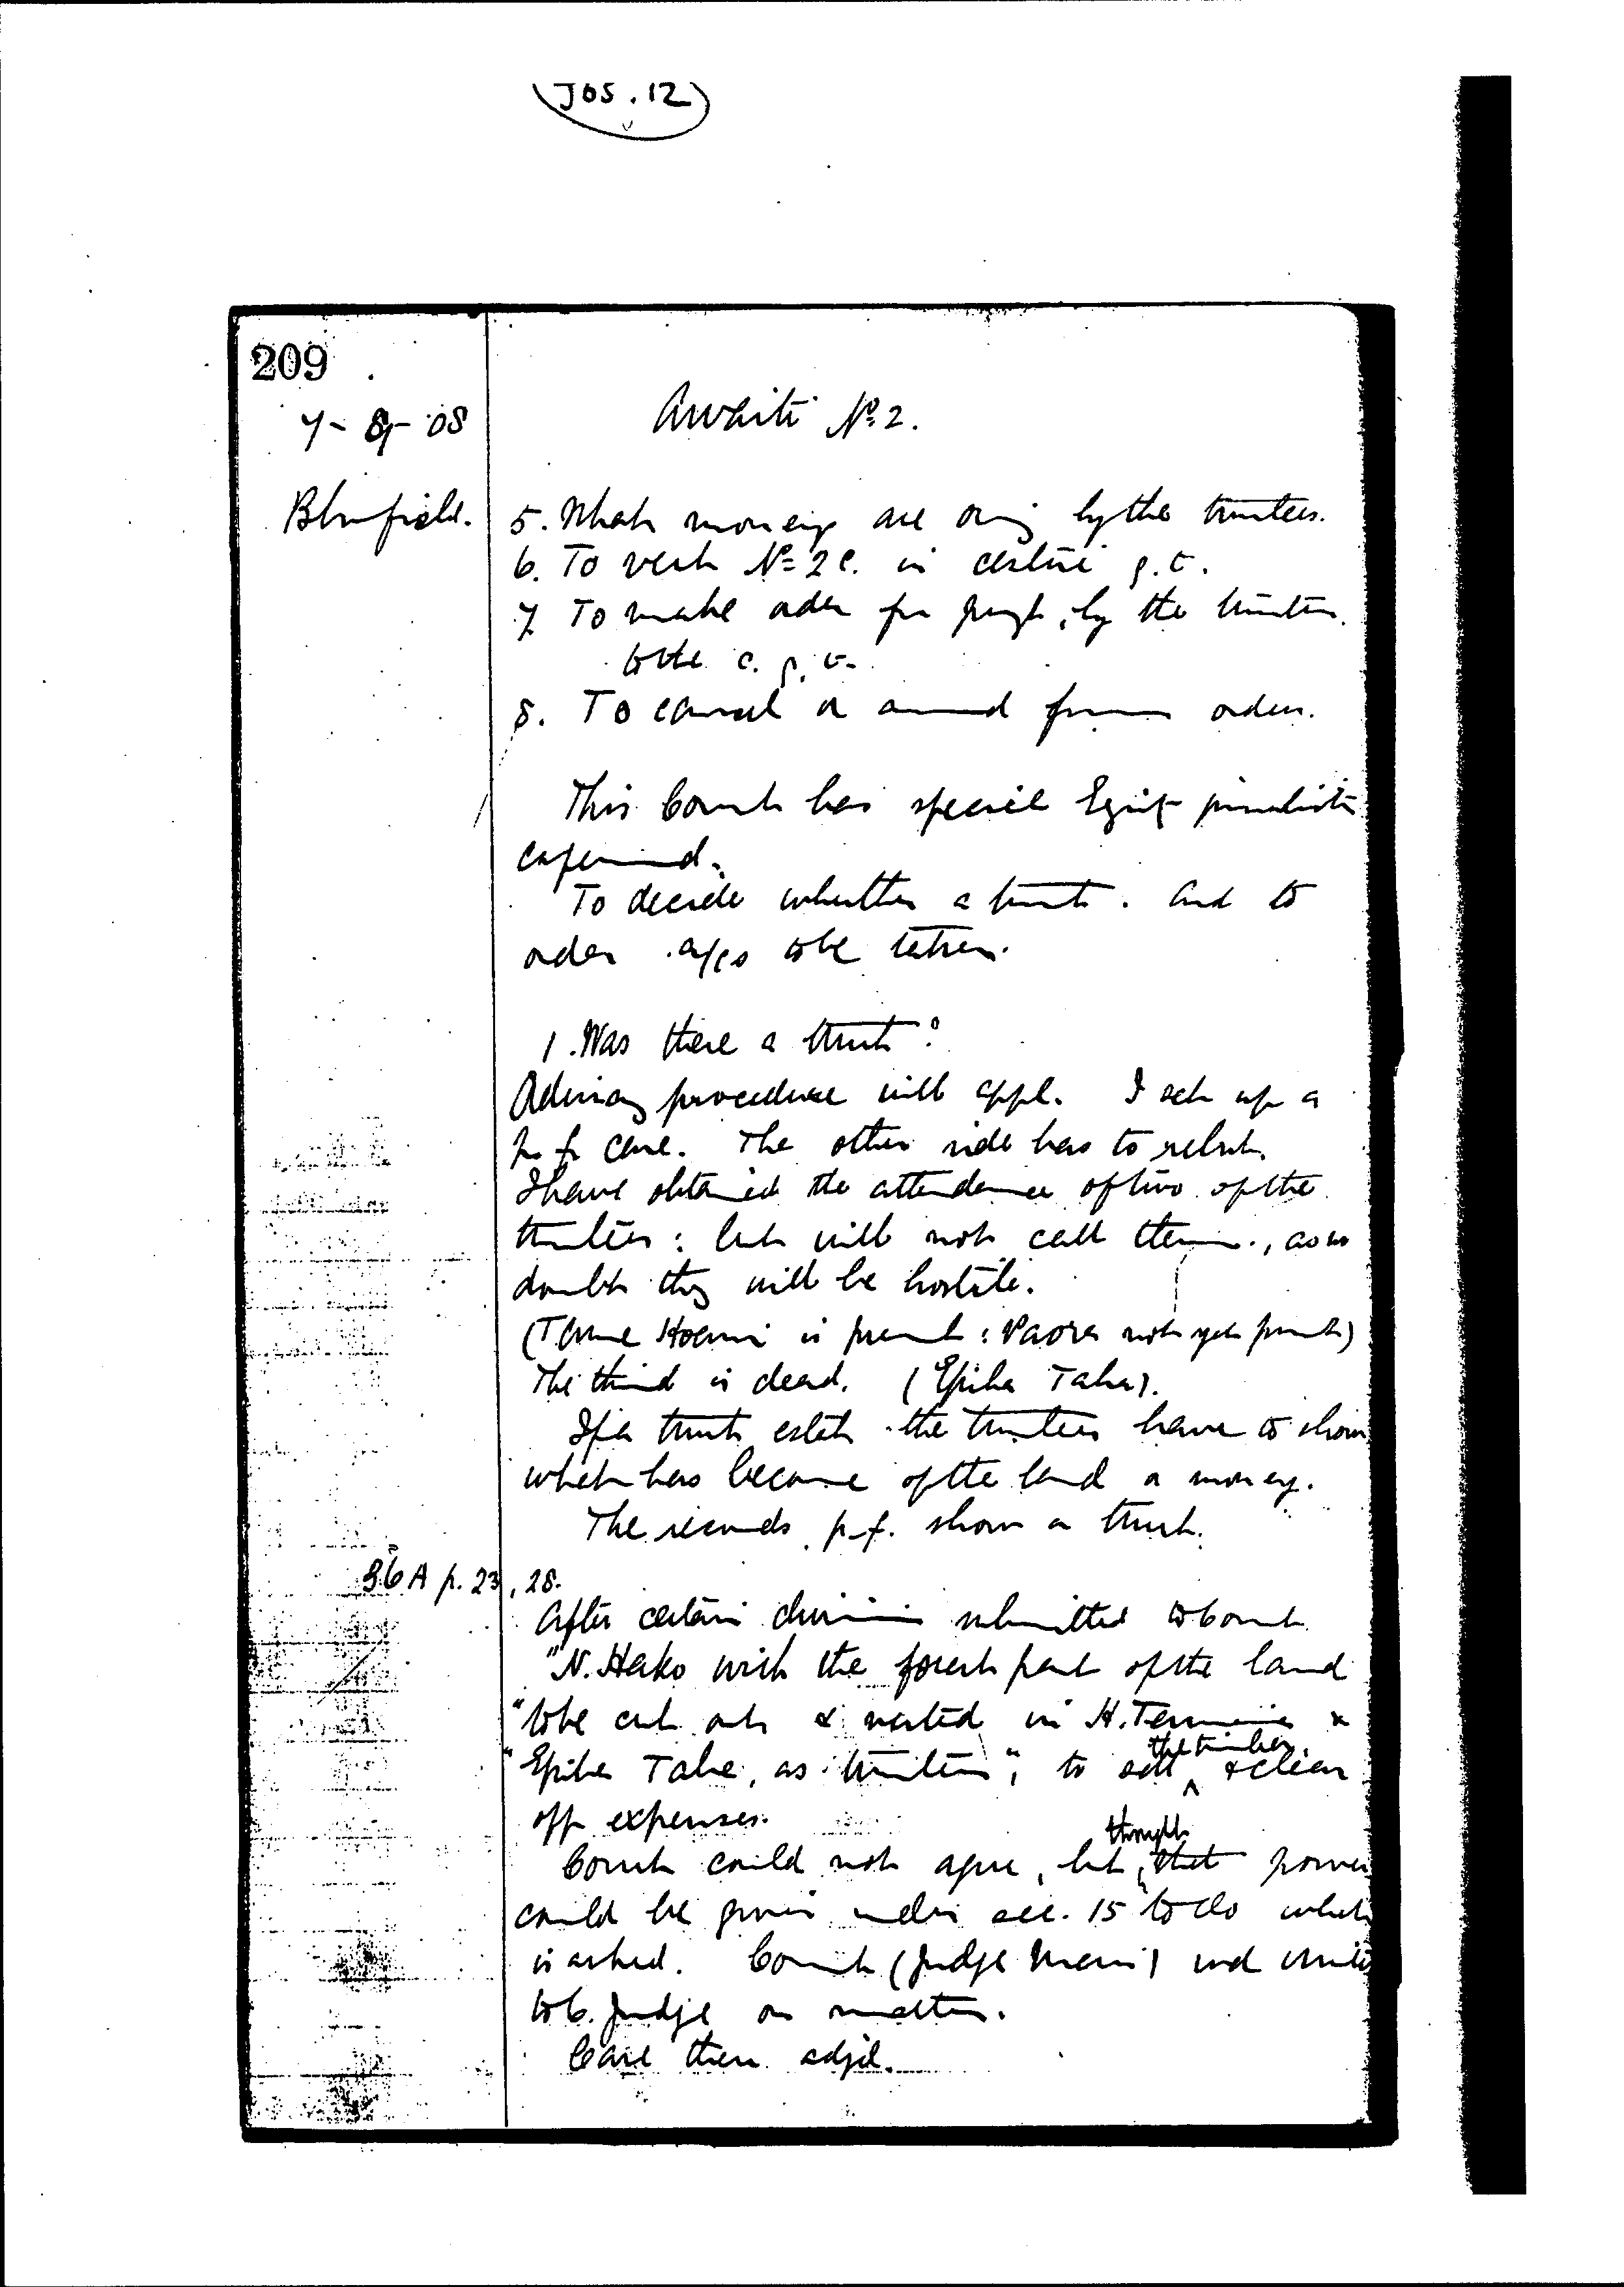 JOS. 12
209
7-8-08
Awaiti No 2.
Blomfield.
5. What moneys are owing by the trustees.
6. To vest No 2C. in cestui q.t.
7 To make order for paymt, by the trustees
to the c. q. t.
8. To cancel or amend former orders.
This Court has special Equity jurisdiction
conferred.
To decide whether a trust. and to
order a/cs to be taken.
1. Was there a trust?
Ordinary procedure will apply. I set up a
p. f. case. The other side has to rebut.
I have obtained the attendance of two of the
trustees: but will not call them, as no
doubt they will be hostile.
(Tame Hoani is present: Paora not yet present)
The third is dead. (Epiha Taha).
If a trust estate the trustees have to show
what has become of the land or money.
The records p.f. show a trust.
36A p. 23, 28.
After certain divisions submitted to Court
"N. Hako wish the forest part of the land
"to be cut out & vested in H. &
"Epiha Taha, as trustees", to sell the timber & clear
off expenses.
Court could not agree, but thought that power
could be given under sec. 15 to do what
is asked. Court (Judge Mair) wd write
to C. Judge on matter.
Case then adjd.